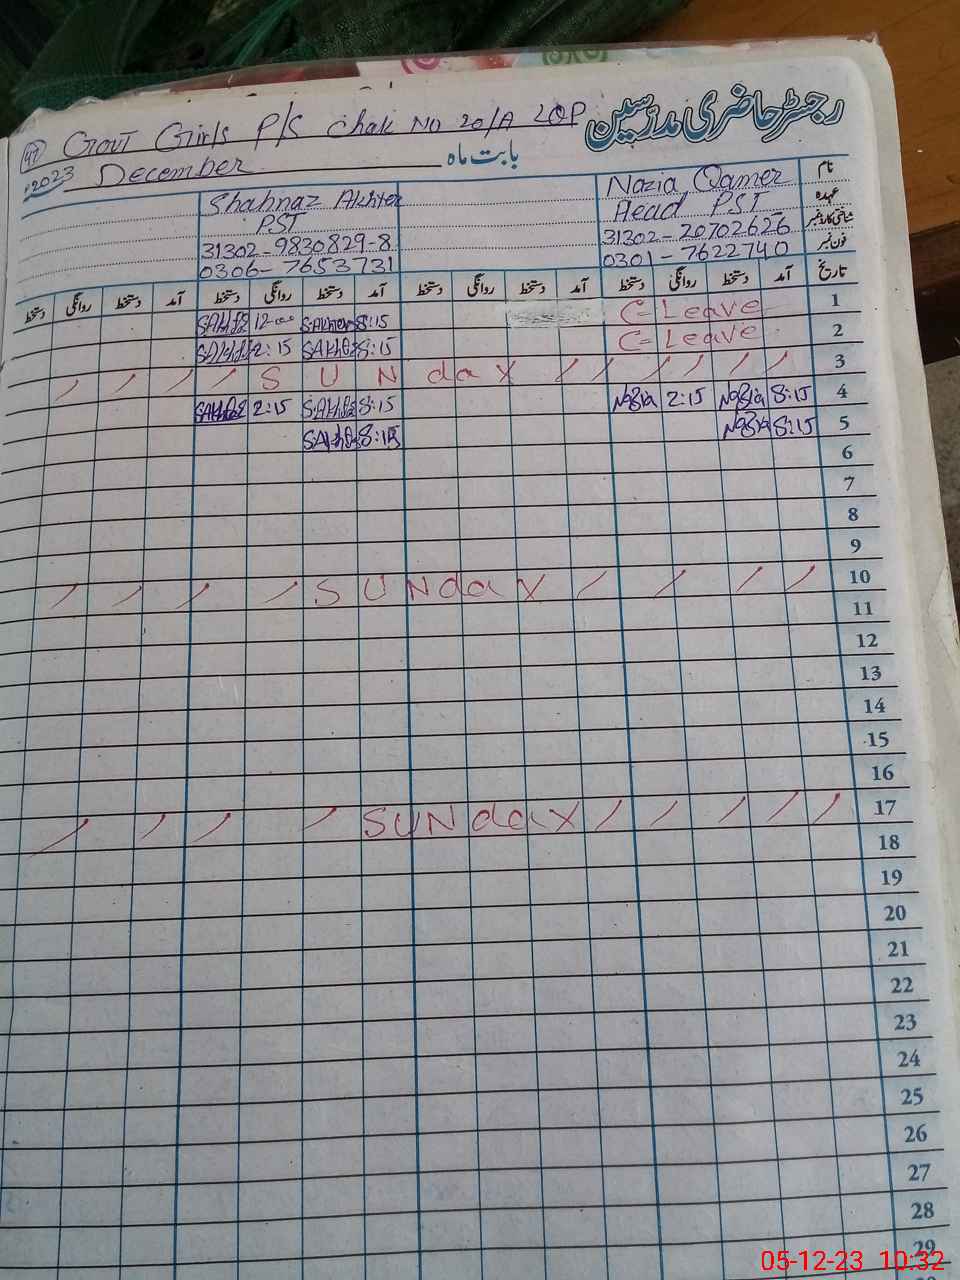 رجسٹر حاضری مدرسین
47 Govt Girls P/S Chak No 20/A LQP
2023 December بابت ماہ
Shahnaz Akhter Nazia Qamer نام
PST Head PST عہدہ
31302-9830829-8 31302-20702626 شناختی کارڈ نمبر
0306-7653731 0301-7622740 فون نمبر
دستخط روانگی دستخط آمد دستخط روانگی دستخط آمد دستخط روانگی دستخط آمد دستخط روانگی دستخط آمد تاریخ
12-00 8:15 C-Leave 1
2:15 8:15 C-Leave 2
SUNday 3
2:15 8:15 Nazia 2:15 Nazia 8:15 4
8:15 Nazia 8:15 5
6
7
8
9
SUNday 10
11
12
13
14
15
16
SUNday 17
18
19
20
21
22
23
24
25
26
27
28
29
05-12-23 10:32